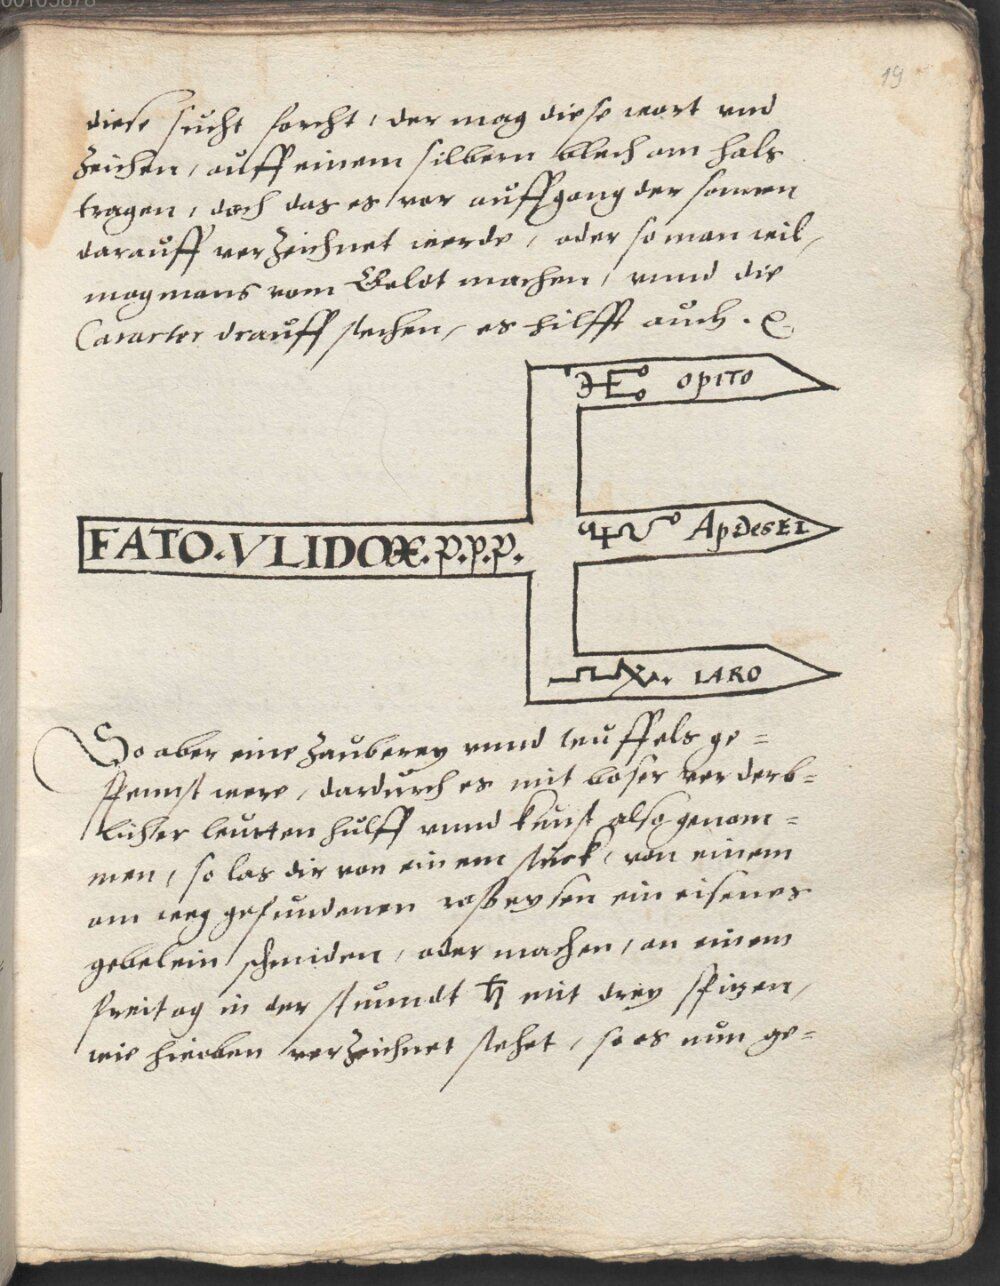 00103878
19
diese sucht forcht, der mag diese wort vnd
Zeichen, auff einem silbern blech am hals
tragen, doch das es vor auffgang der sonnen
darauff verzeichnet werde, oder so man wil,
mag mans vom Goldt machen, vnnd die
Caracter drauff stechen, es hilfft auch.
OPITO
FATO.VLIDOX.p.p.p.
ApDesEI
IARO
So aber eine Zauberey vnnd teuffels ge=
spennst were, dardurch es mit böser verderb=
licher leutten hülff vnnd kunst also genom=
men, so las dir von einem stuck, von einem
am weg gefundenen roßeysen ein eisenes
gebelein schmiden, oder machen, an einem
freitag in der stunndt ♄ mit drey spitzen,
wie hieoben verzeichnet stehet, so es nun ge=